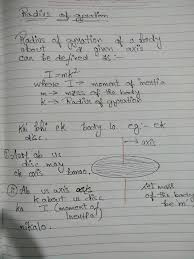 Radius of gyration
Radius of gyration of a body
about a given axis
can be defined as :-
I = mk²
where I → moment of inertia
m → mass of the body
k → Radius of gyration
khi bhi ek body lo eg:- ek
disc.
axis
disc may
ek axis
Ab us axis
k about us disc
ka I (moment of
inertia)
nikalo.
let mass
of the body
be 'm'